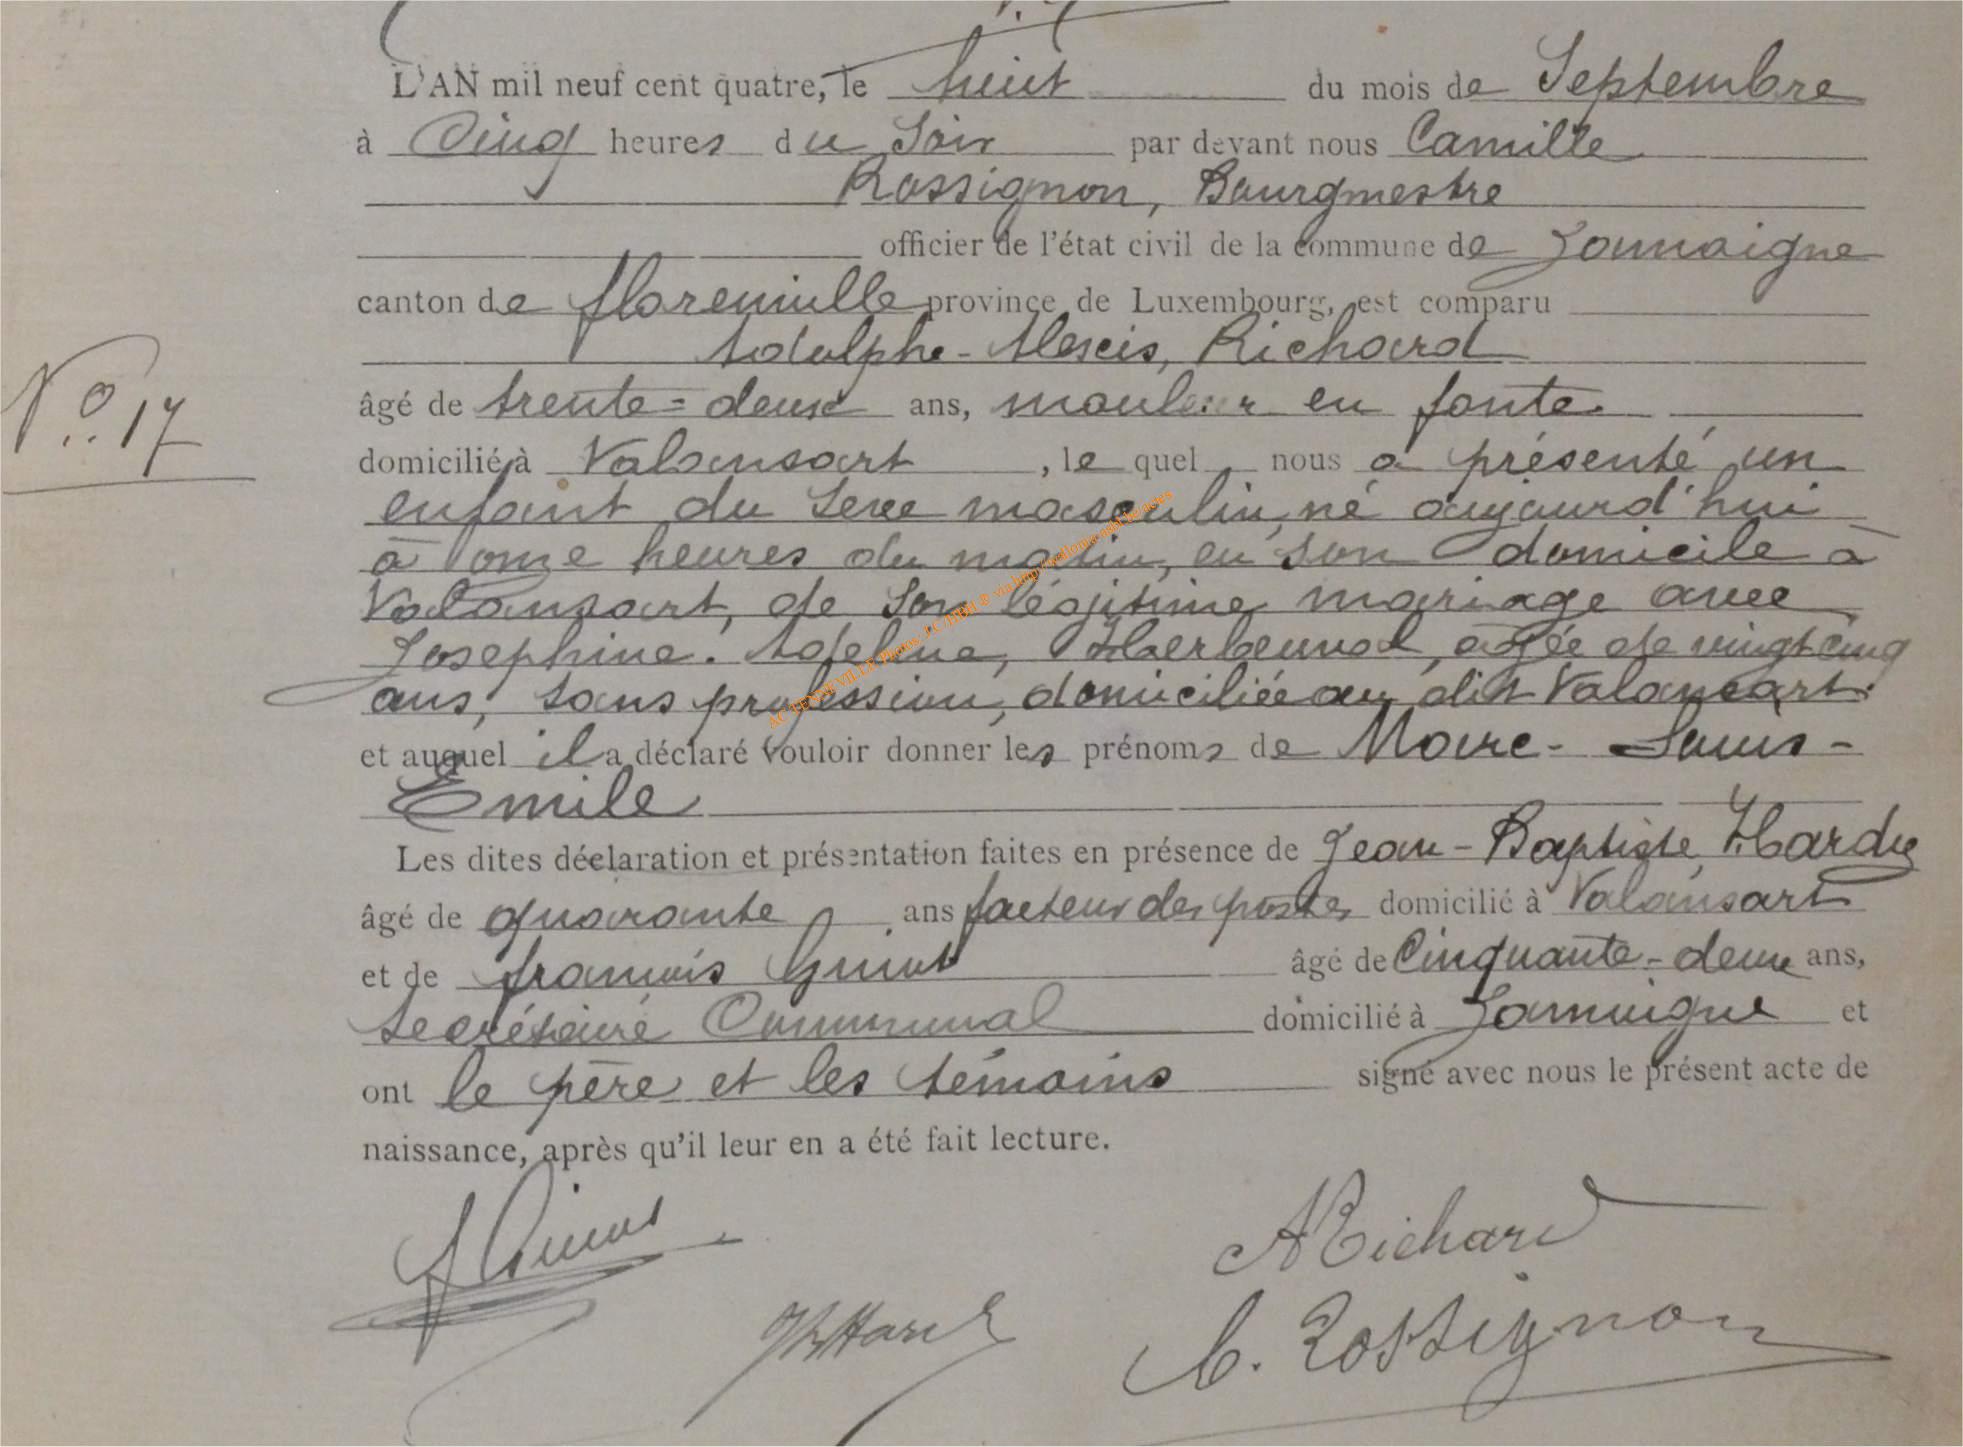 L'AN mil neuf cent quatre, le huit du mois de Septembre
à Cinq heures du Soir par devant nous Camille
Rossignon, Bourgmestre
officier de l'état civil de la commune de Jamoigne
canton de florenville province de Luxembourg, est comparu
Adolphe-Alexis, Richard
âgé de trente-deux ans, mouleur en fonte.
N° 17
domicilié à Valansart, lequel nous a présenté un
enfant du Sexe masculin, né aujourd'hui
à onze heures du matin, en son domicile à
Valansart, de Son légitime mariage avec
Josephine. Adeline, Herbeuval, agée de vingt cinq
ans, sans profession, domiciliée au dit Valansart.
et auquel il a déclaré vouloir donner les prénoms de Marc-Louis-
Emile
Les dites déclaration et présentation faites en présence de Jean-Baptiste Hardy
âgé de quarante ans facteur des postes domicilié à Valansart
et de françois Guiot âgé de Cinquante-deux ans,
Secrétaire Communal domicilié à Jamoigne et
ont le père et les témoins signé avec nous le présent acte de
naissance, après qu'il leur en a été fait lecture.
ARichard
C. Rossignon